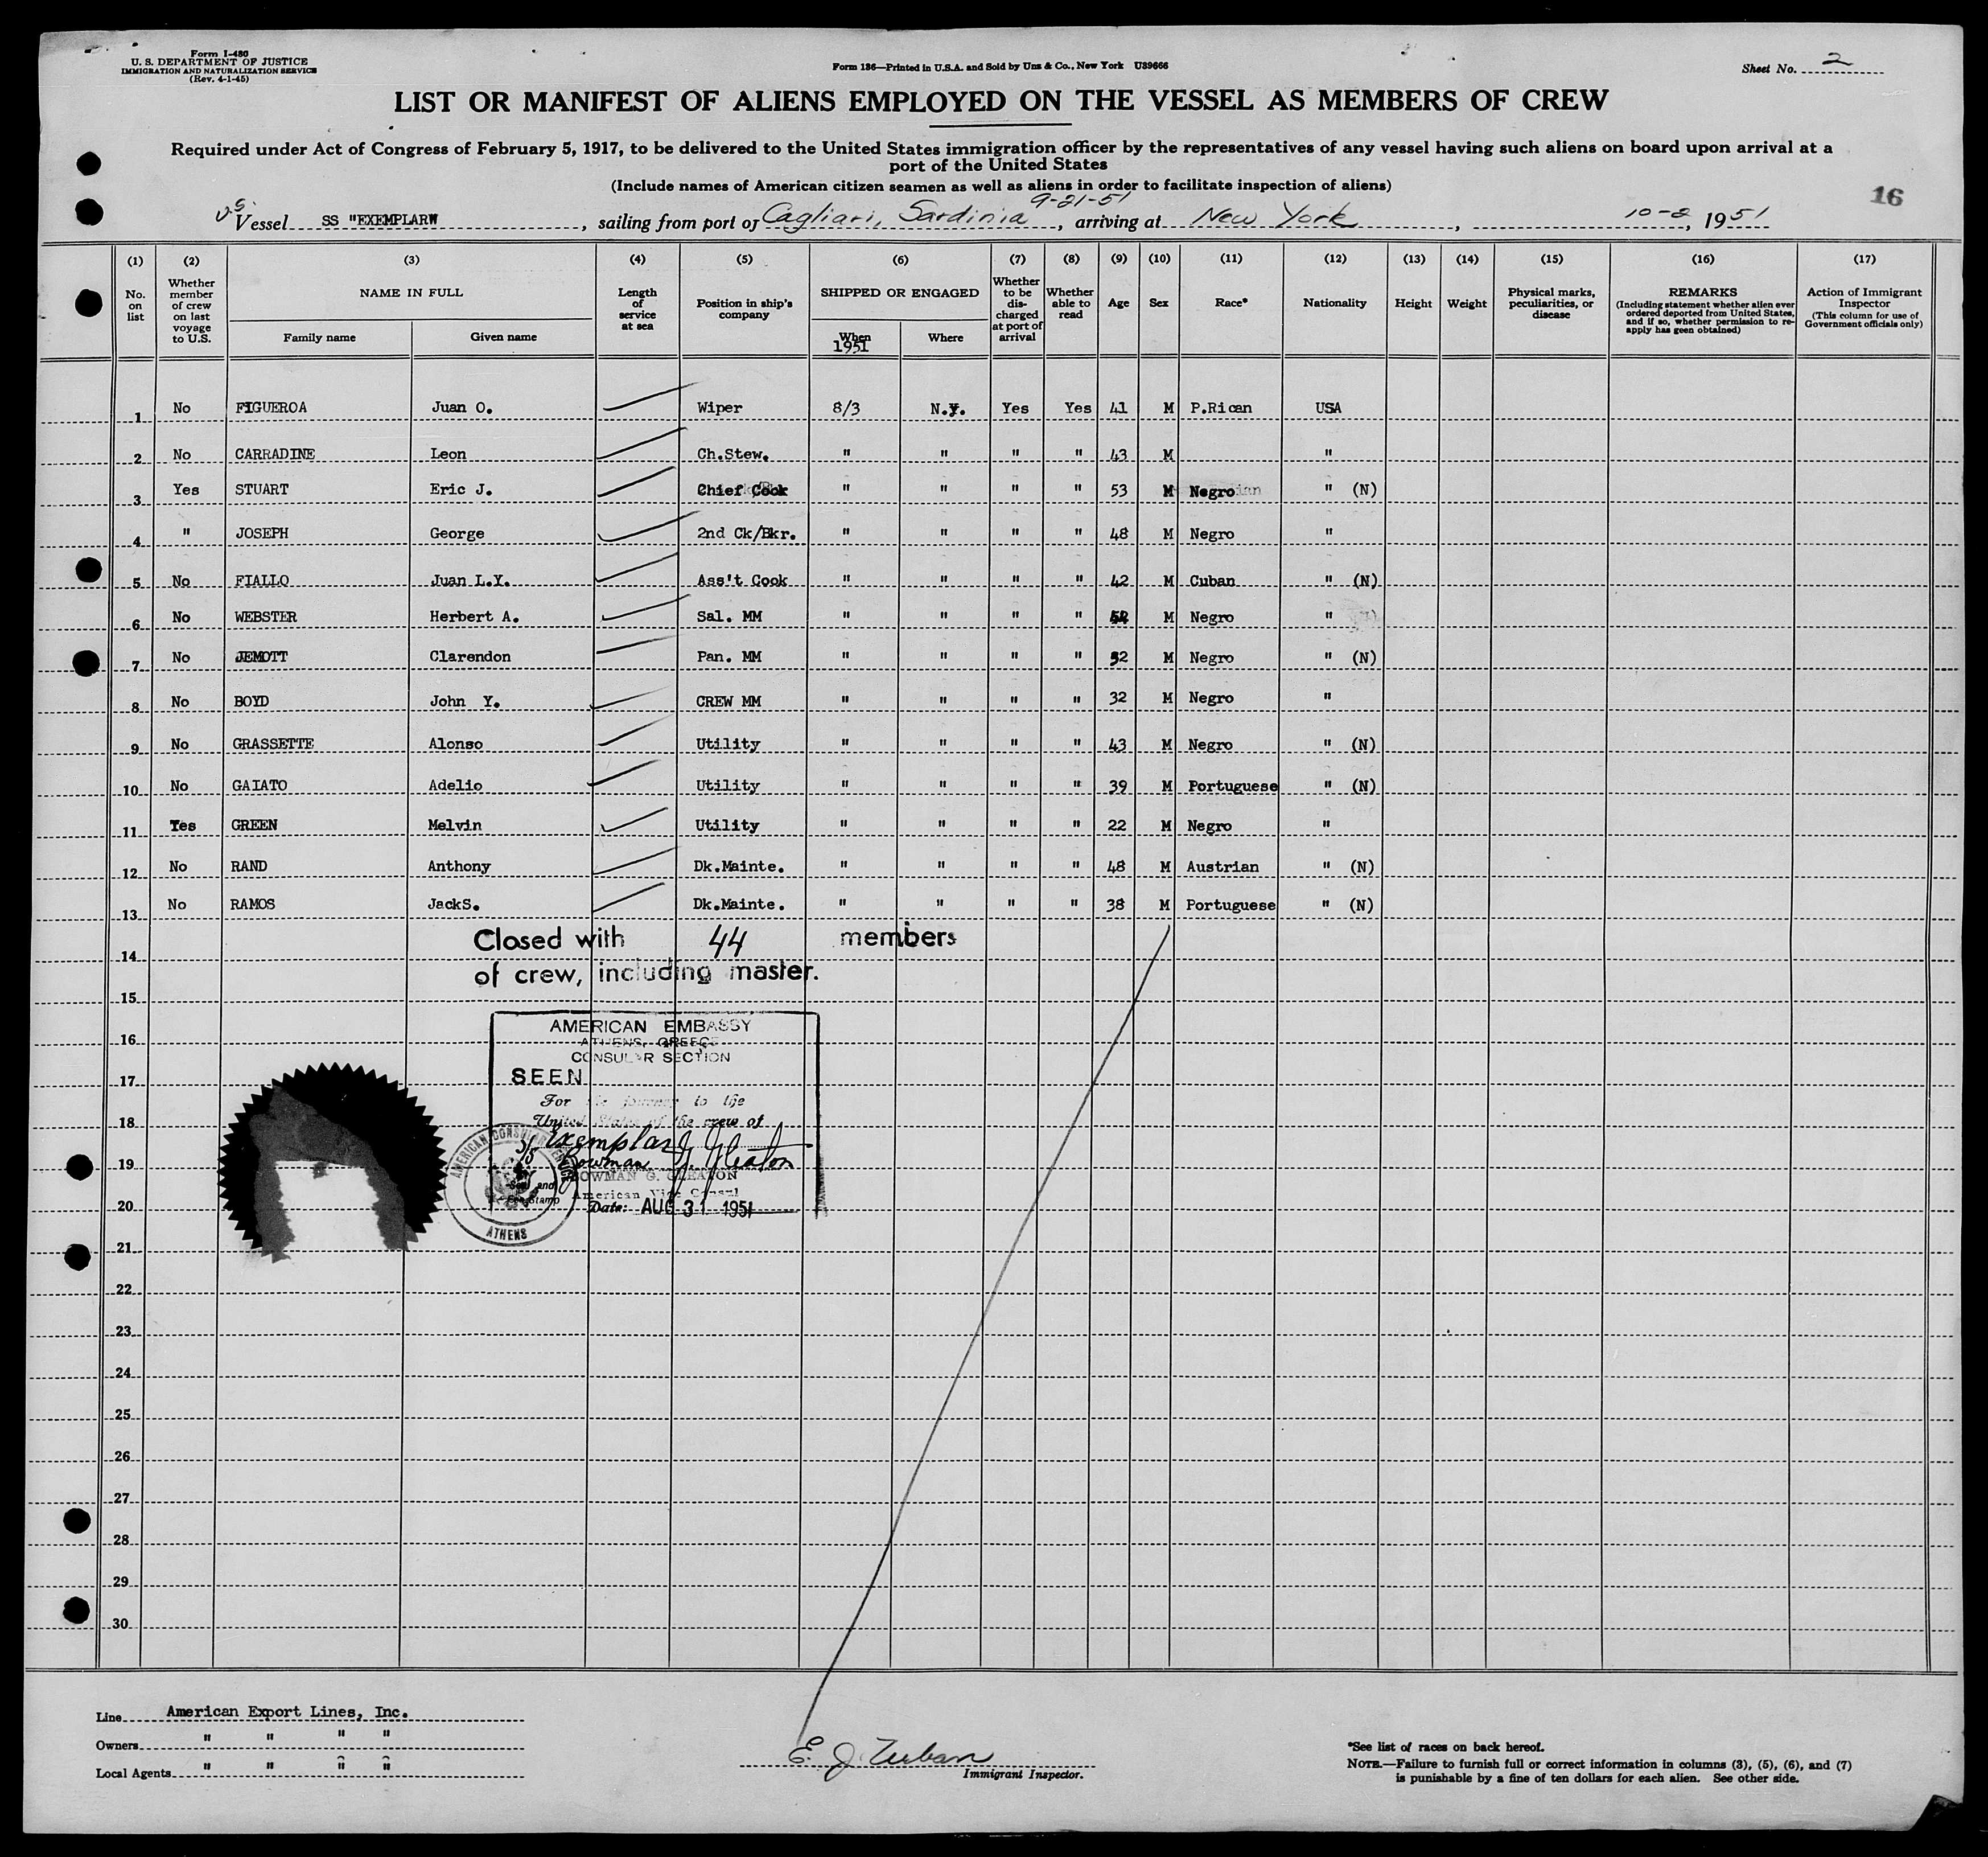 Form I-480
U. S. DEPARTMENT OF JUSTICE
IMMIGRATION AND NATURALIZATION SERVICE
(Rev. 4-1-45)
Form 136—Printed in U.S.A. and Sold by Unz & Co., New York U39666
Sheet No. 2
LIST OR MANIFEST OF ALIENS EMPLOYED ON THE VESSEL AS MEMBERS OF CREW
Required under Act of Congress of February 5, 1917, to be delivered to the United States immigration officer by the representatives of any vessel having such aliens on board upon arrival at a
port of the United States
(Include names of American citizen seamen as well as aliens in order to facilitate inspection of aliens)
16
9-21-51
U.S. Vessel SS "EXEMPLARW, sailing from port of Cagliari, Sardinia, arriving at New York, 10-2, 1951
(1) (2) (3) (4) (5) (6) (7) (8) (9) (10) (11) (12) (13) (14) (15) (16) (17)
No. on list
Whether member of crew on last voyage to U.S.
NAME IN FULL
Family name
Given name
Length of service at sea
Position in ship's company
SHIPPED OR ENGAGED
When
1951
Where
Whether to be discharged at port of arrival
Whether able to read
Age
Sex
Race*
Nationality
Height
Weight
Physical marks, peculiarities, or disease
REMARKS
(Including statement whether alien ever ordered deported from United States, and if so, whether permission to re-apply has geen obtained)
Action of Immigrant Inspector
(This column for use of Government officials only)
1 No FIGUEROA Juan O. Wiper 8/3 N.Y. Yes Yes 41 M P.Rican USA
2 No CARRADINE Leon Ch.Stew. " " " " 43 M "
3 Yes STUART Eric J. Chief Cook " " " " 53 M Negro " (N)
4 " JOSEPH George 2nd Ck/Bkr. " " " " 48 M Negro "
5 No FIALLO Juan L.Y. Ass't Cook " " " " 42 M Cuban " (N)
6 No WEBSTER Herbert A. Sal. MM " " " " M Negro "
7 No JEMOTT Clarendon Pan. MM " " " " 52 M Negro " (N)
8 No BOYD John Y. CREW MM " " " " 32 M Negro "
9 No GRASSETTE Alonso Utility " " " " 43 M Negro " (N)
10 No GAIATO Adelio Utility " " " " 39 M Portuguese " (N)
11 Yes GREEN Melvin Utility " " " " 22 M Negro "
12 No RAND Anthony Dk.Mainte. " " " " 48 M Austrian " (N)
13 No RAMOS JackS. Dk.Mainte. " " " " 38 M Portuguese " (N)
Closed with 44 members
14
of crew, including master.
15
AMERICAN EMBASSY
16
ATHENS, GREECE
CONSULAR SECTION
17
SEEN
For the journey to the
18
United States of the crew of
S/S Exemplar
19
Bowman G. Gleaton
BOWMAN G. GLEATON
American Vice Consul
20
Date: AUG 31 1951
AMERICAN CONSULAR SERVICE
ATHENS
Seal and
Fee Stamp
21
22
23
24
25
26
27
28
29
30
Line American Export Lines, Inc.
Owners " " " "
Local Agents " " " "
E. J. Zuban
Immigrant Inspector.
*See list of races on back hereof.
NOTE.—Failure to furnish full or correct information in columns (3), (5), (6), and (7)
is punishable by a fine of ten dollars for each alien. See other side.